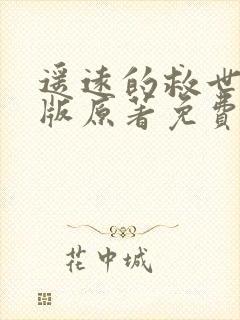 遥远的救世
版原著免费
花中城